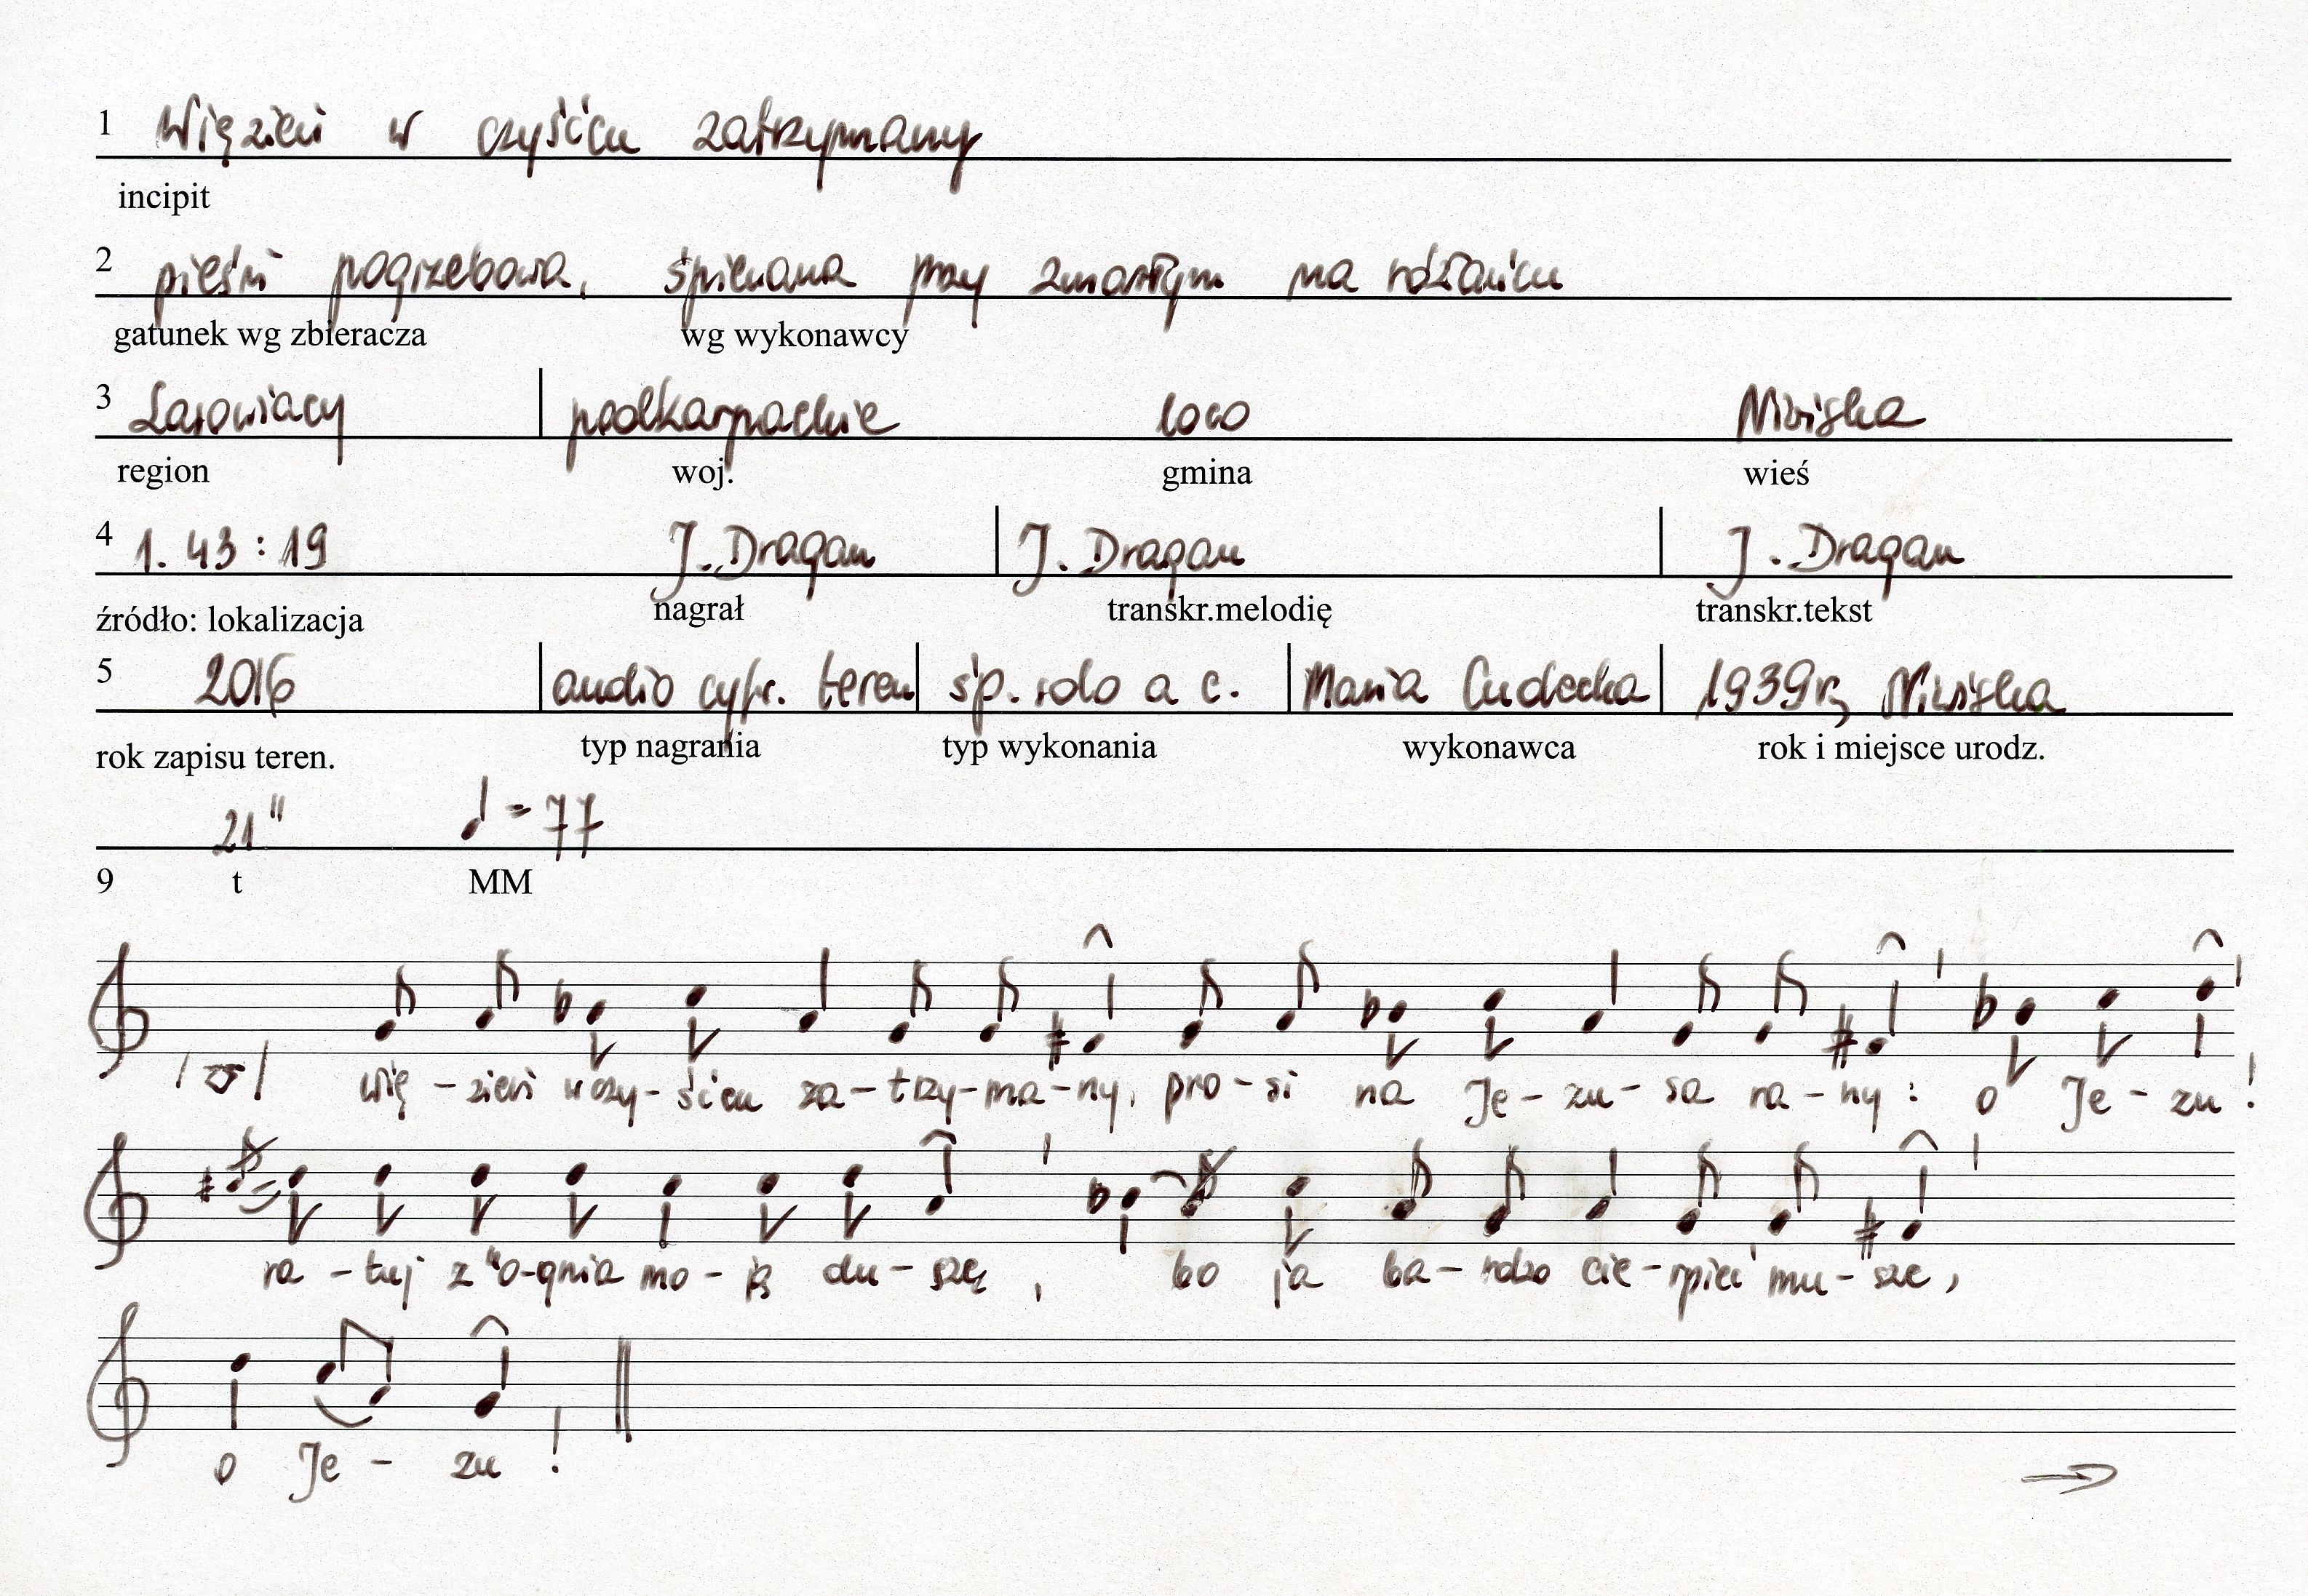 1 Więzień w czyśćcu zatrzymany
incipit
2 pieśń pogrzebowa, śpiewana przy zmarłym na różańcu
gatunek wg zbieracza wg wykonawcy
3 Lasowiacy podkarpackie loco Niwiska
region woj. gmina wieś
4 1. 43 : 19 J. Dragan J. Dragan J. Dragan
źródło: lokalizacja nagrał transkr.melodię transkr.tekst
5 2016 audio cyfr. teren śp. solo a c. Maria Cudecka 1939r, Niwiska
rok zapisu teren. typ nagrania typ wykonania wykonawca rok i miejsce urodz.
21" = 77
9 t MM
wię - zień w czy - śćcu za - trzy - ma - ny, pro - si na Je - zu - sa ra - ny : o Je - zu !
ra - tuj z "o - gnia mo - ją du - szę , bo ja ba - rdzo cie - rpieć mu - szę ,
o Je - zu !